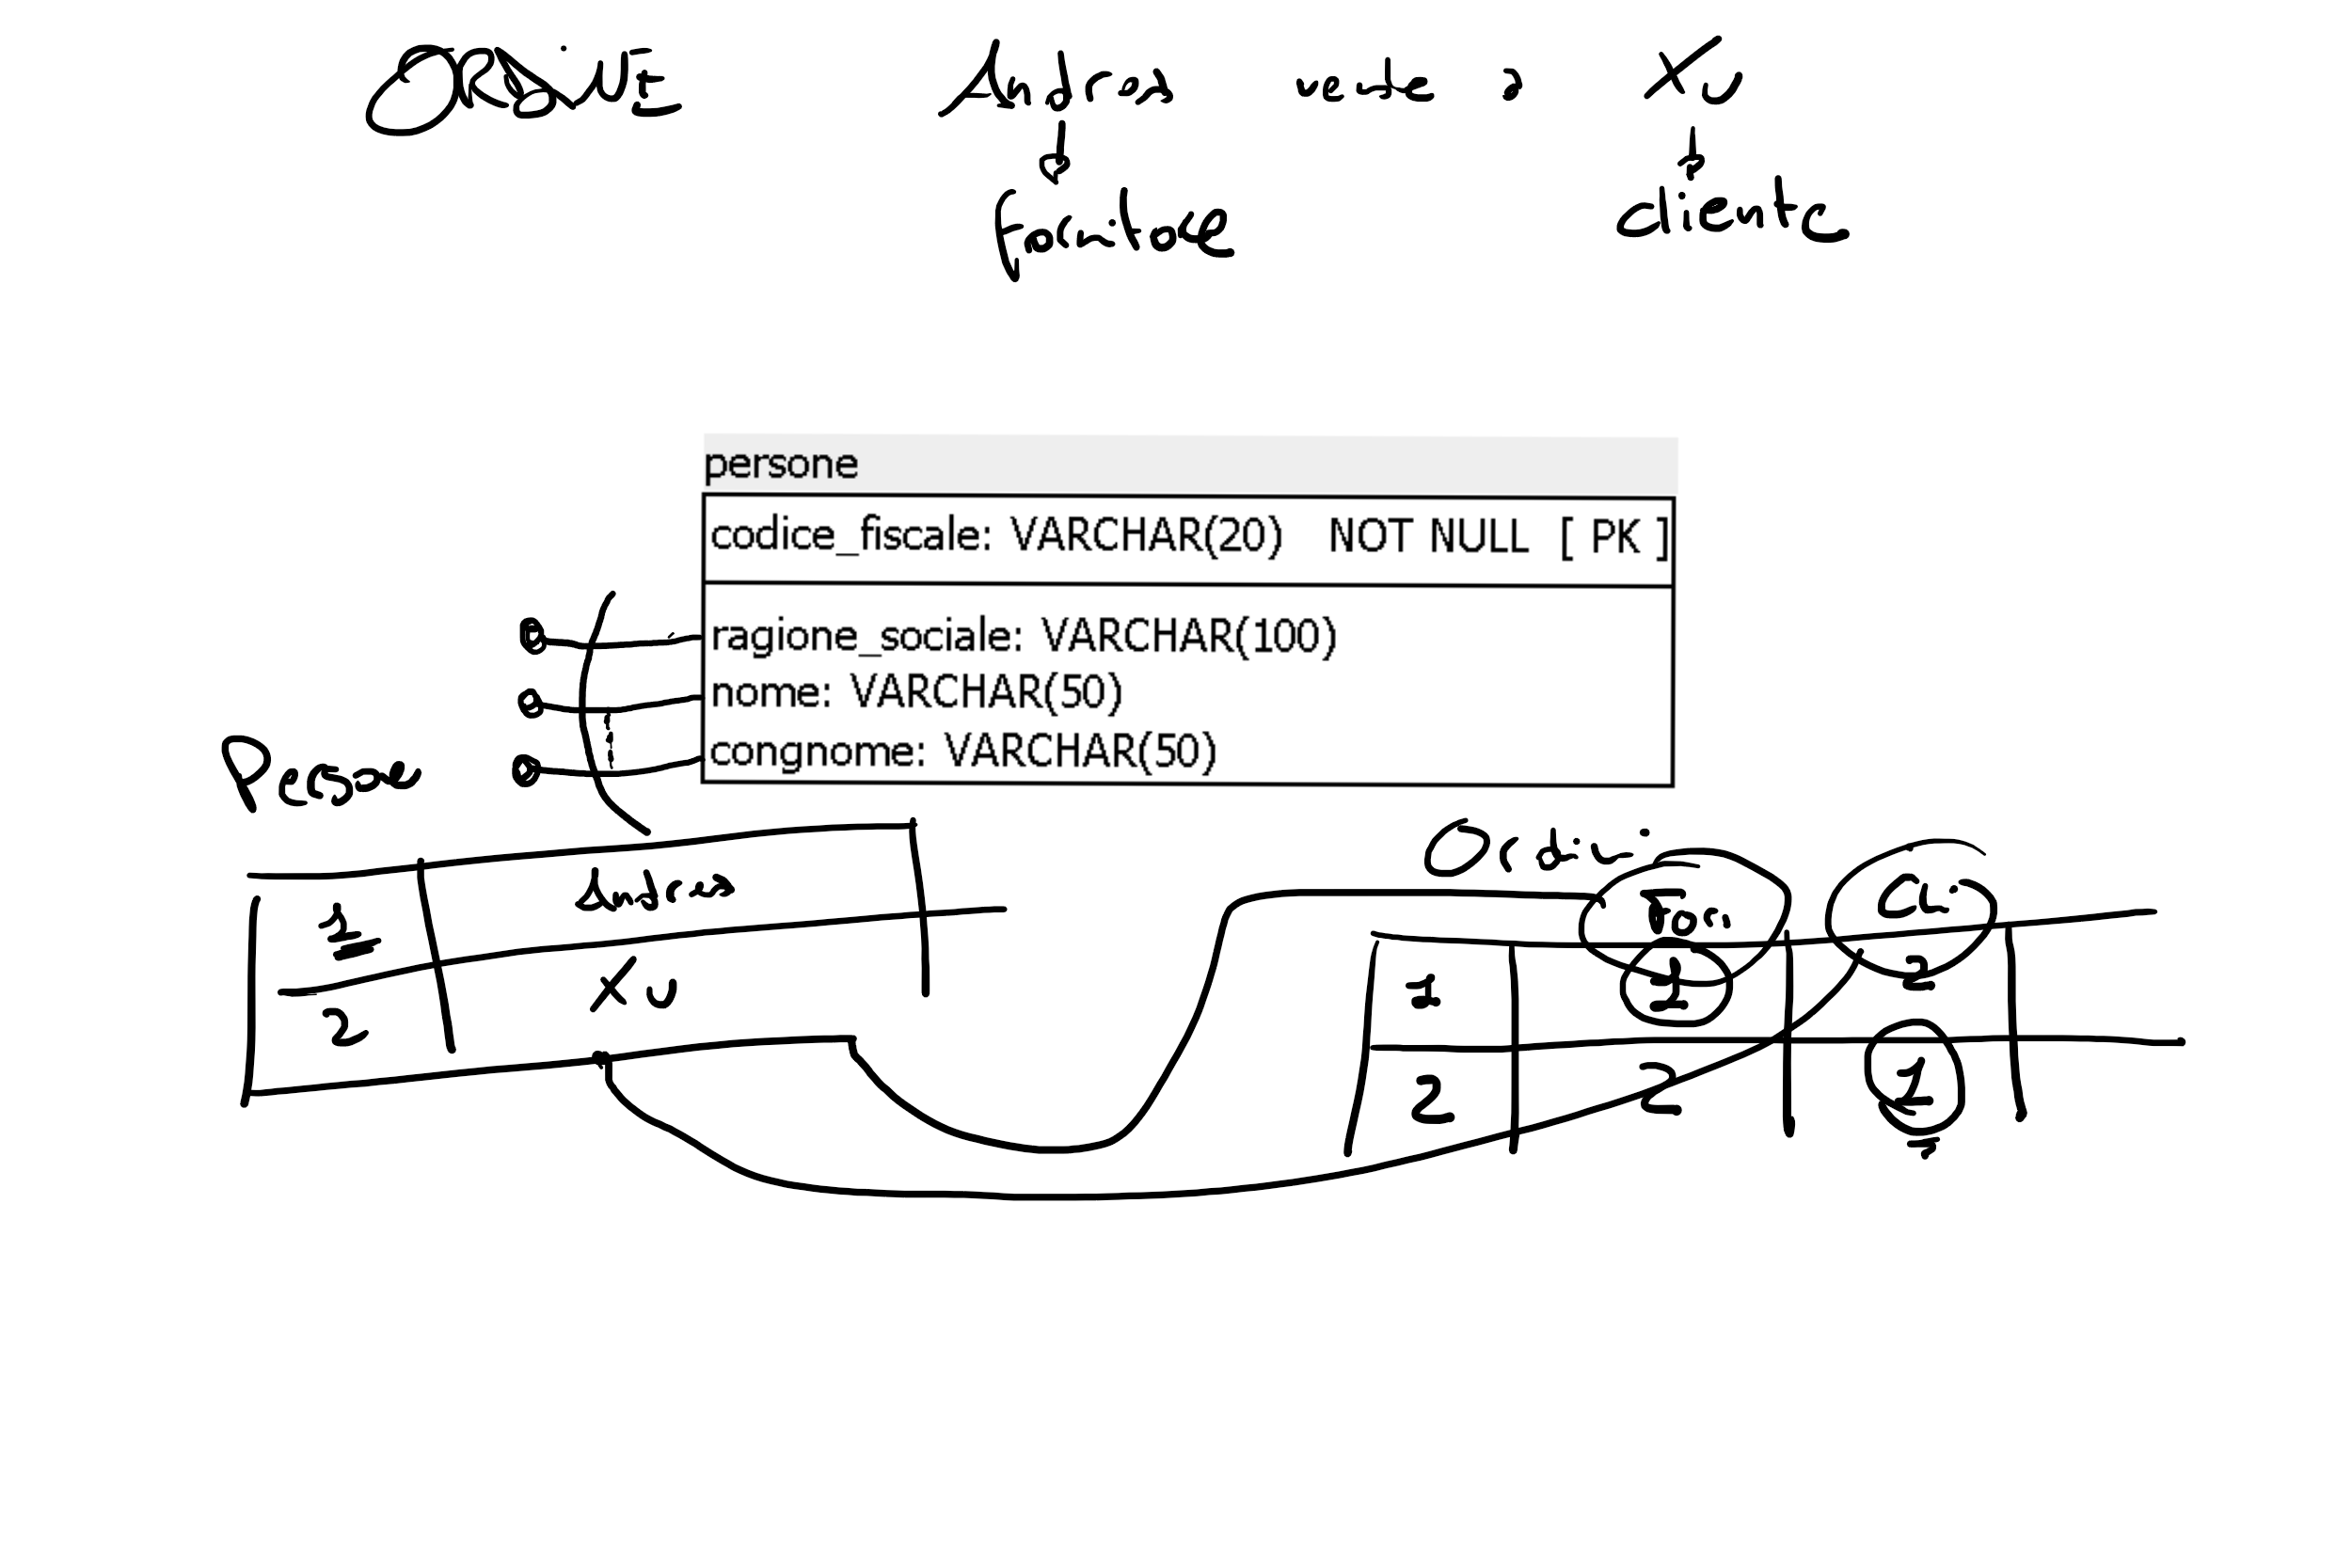 ORDiNE Andrea vende a XU
fornitore cliente
persone
codice_fiscale: VARCHAR(20) NOT NULL [ PK ]
ragione_sociale: VARCHAR(100)
nome: VARCHAR(50)
congnome: VARCHAR(50)
Persone
Ordini
Forn Cli
1 Andrea
2 XU
1 1 2
2 2 1